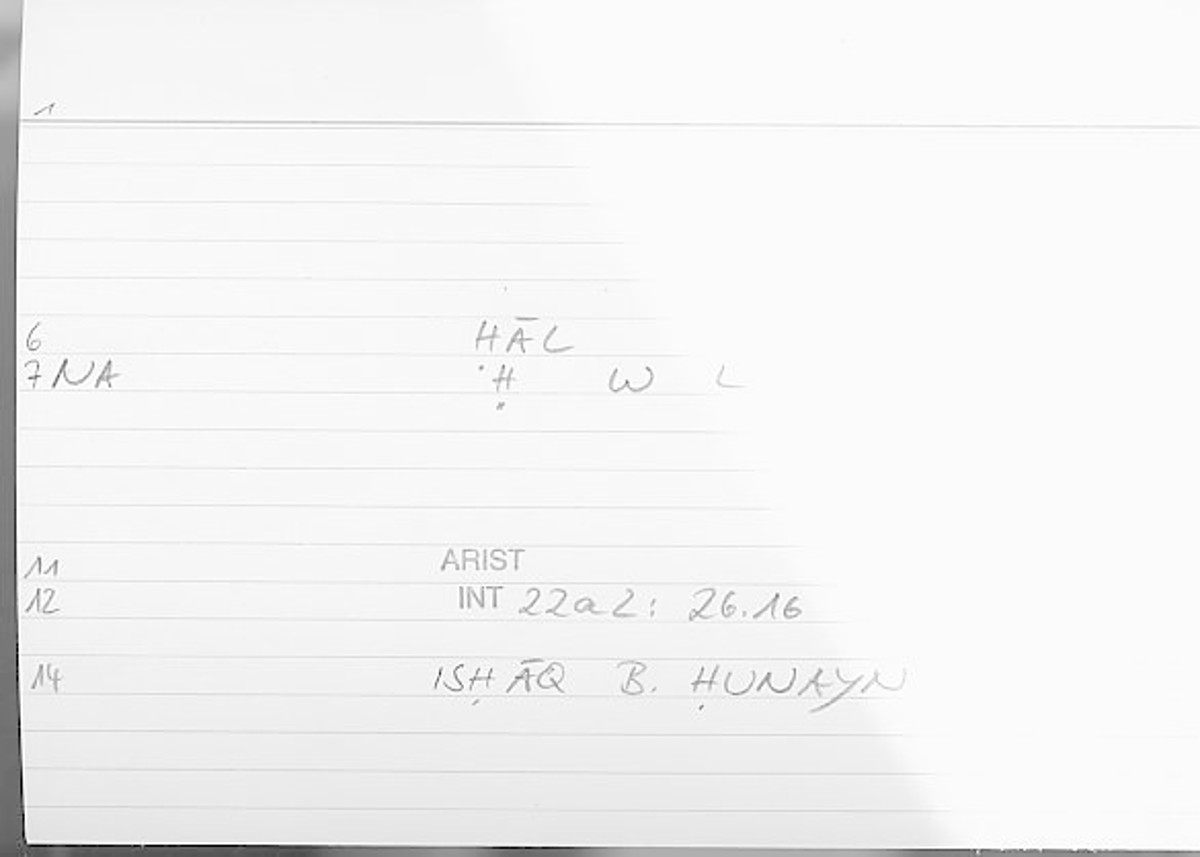 1
6 HĀL
7 NA Ḥ W L
11 ARIST
12 INT 22a2: 26.16
14 ISḤĀQ B. ḤUNAYN